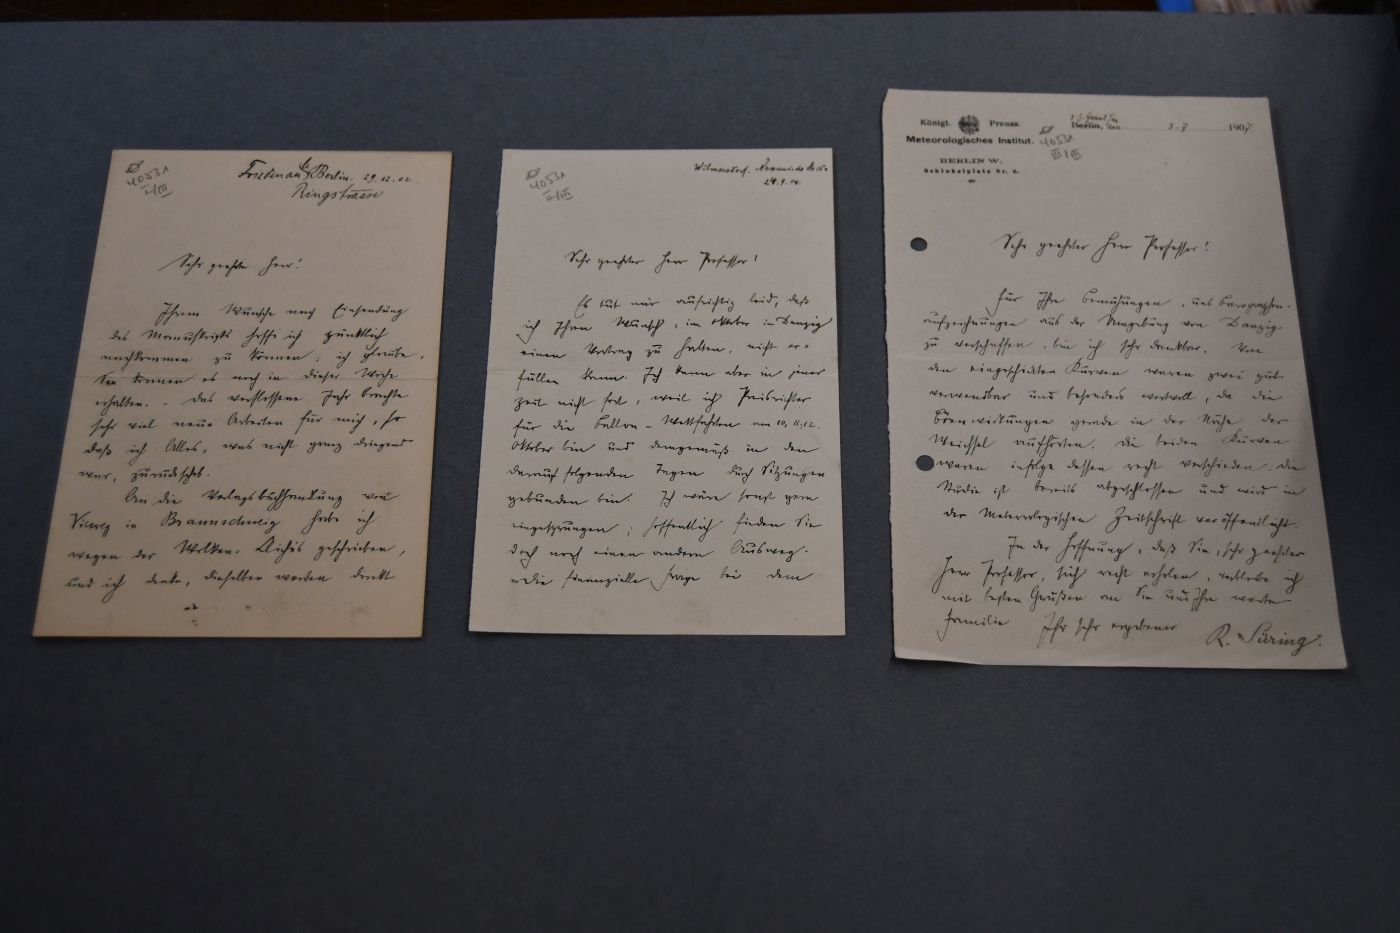 40531
II/III
Friedenau b/Berlin. 29.12.02.
Ringstrasse
Sehr geehrter Herr!
Ihrem Wunsche nach Einsendung
des Manuskripts hoffe ich pünktlich
nachkommen zu können; ich glaube,
Sie können es noch in dieser Woche
erhalten. - Das verflossene Jahr brachte
sehr viel neue Arbeiten für mich, so
daß ich Alles, was nicht ganz dringend
war, zurückschob.
An die Verlagsbuchhandlung von
Vieweg in Braunschweig habe ich
wegen der Wolken-Clichés geschrieben,
und ich denke, dieselben werden direkt
40531
II/III
Wilmersdorf.
24.9.
Sehr geehrter Herr Professor!
Es tut mir aufrichtig leid, daß
ich Ihren Wunsch, im Oktober in Danzig
einen Vortrag zu halten, nicht er=
füllen kann. Ich kann aber in jener
Zeit nicht fort, weil ich Preisrichter
für die Ballon-Wettfahrten am 10, 11, 12.
Oktober bin und demgemäß in den
darauf folgenden Tagen durch Sitzungen
gebunden bin. Ich wäre sonst gern
eingesprungen; hoffentlich finden Sie
doch noch einen andern Ausweg.
Die finanzielle Frage bei dem
Königl. Preuss.
Meteorologisches Institut.
BERLIN W.
Schinkelplatz Nr. 6.
40531
III/III
Berlin, den 3.7 1907.
Sehr geehrter Herr Professor!
Für Ihre Bemühungen, uns Barographen-
aufzeichnungen aus der Umgebung von Danzig
zu verschaffen, bin ich sehr dankbar. Von
den eingeschickten Kurven waren zwei gut
verwendbar und besonders wertvoll, da die
Böenwirkungen gerade in der Nähe der
Weichsel aufhörten. Die beiden Kurven
waren infolge dessen recht verschieden. Die
Studie ist bereits abgeschlossen und wird in
der Meteorologischen Zeitschrift veröffentlicht.
In der Hoffnung, daß Sie, sehr geehrter
Herr Professor, sich recht erholen, verbleibe ich
mit besten Grüßen an Sie und Ihre werte
Familie Ihr sehr ergebener
R. Süring.